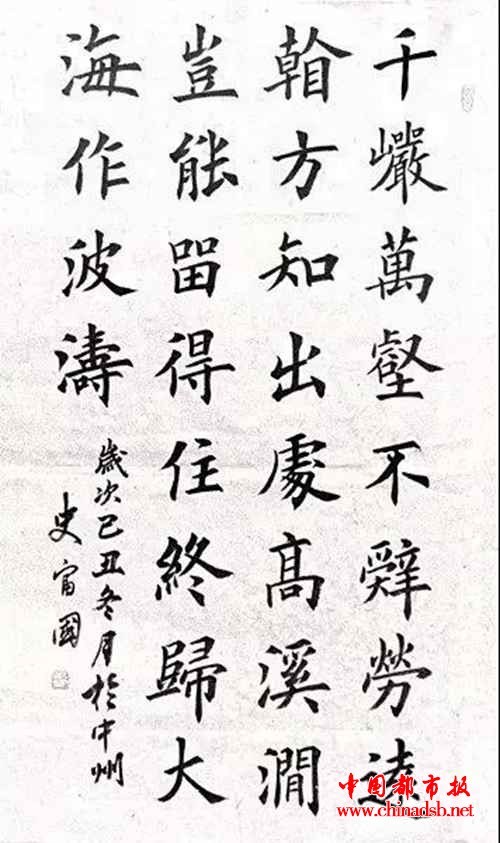 千巗萬壑不辭勞遠
看方知出處髙溪澗
豈能留得住終歸大
海作波濤
歲次己丑冬月於中州
史富國
中国都市报
www.chinadsb.net